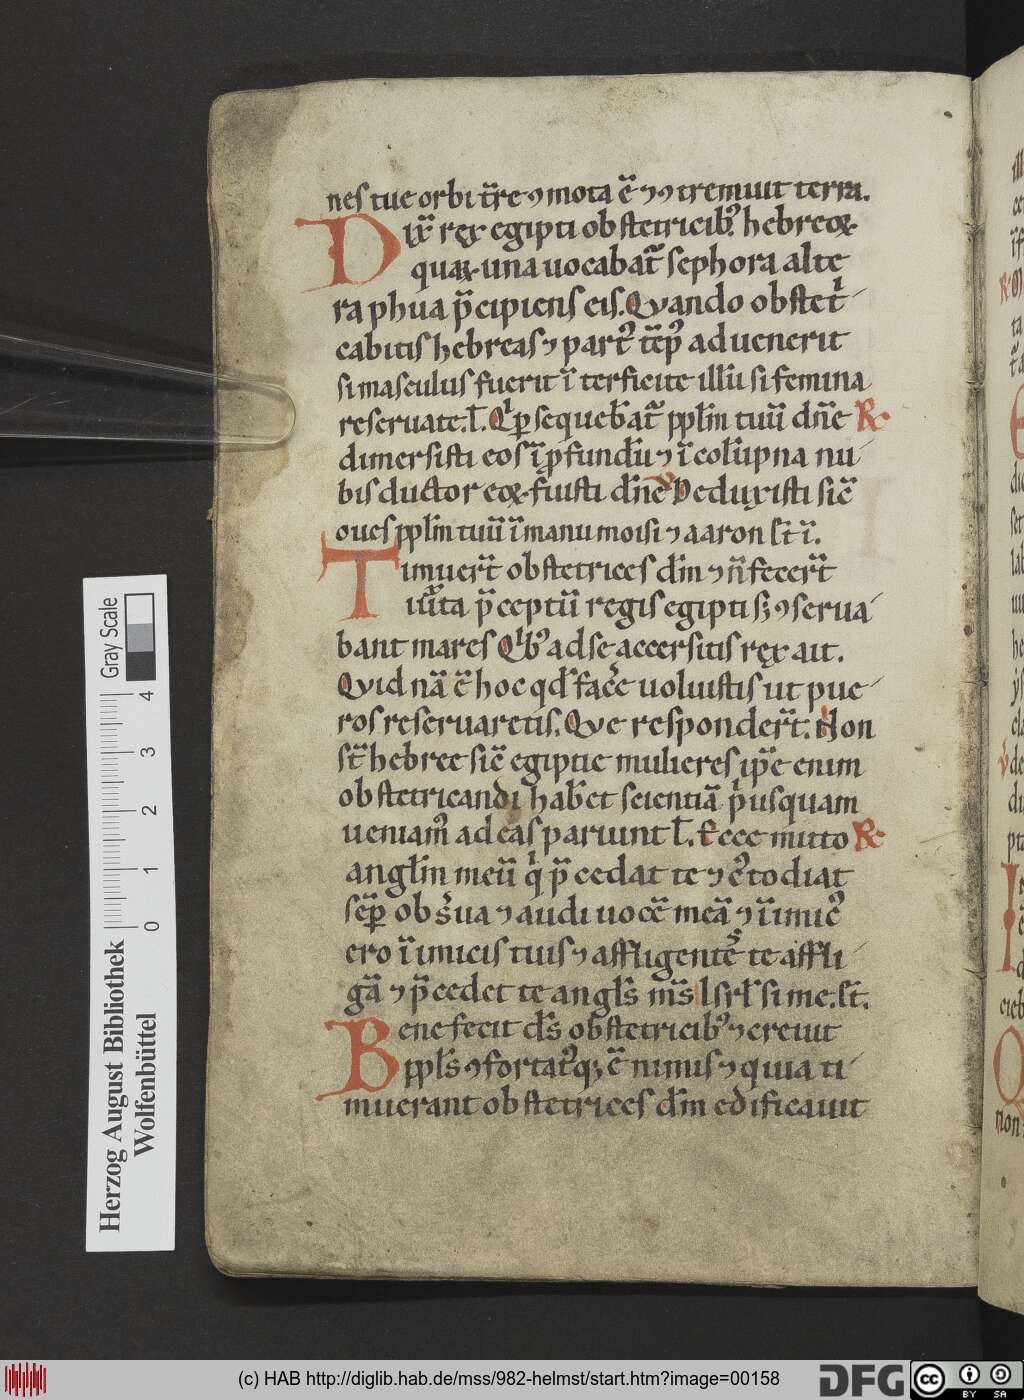 nes tue orbi t̄re ꝯmota ē ⁊ ꝯtremuit terra.
Dix̄ rex egipti obstetricibꝰ hebreoꝝ
quaꝝ una uocabat᷑ sephora alte
ra phua p̄cipiens eis. Quando obstet
cabitis hebreas ⁊ partꝰ tēpꝰ aduenerit
si masculus fuerit īterficite illū si femina
reseruate. ł. Qi ꝑsequebat᷑ ppl̄m tuū dn̄e R
dimersisti eos ī ꝓfundū ⁊ ī colūpna nu
bis ductor eoꝝ fuisti dn̄e V Deduxisti sic̄
oues ppl̄m tuū ī manu moisi ⁊ aaron st̄ ī.
Timuer̄t obstetrices dm̄ ⁊ n̄ fecer̄t
iuxta p̄ceptū regis egipti sꝫ ꝯserua
bant mares Qibꝰ ad se accersitis rex ait.
Quid nā ē hoc qd̄ facē uoluistis ut pue
ros reseruaretis. Que responder̄t. Non
st̄ hebree sic̄ egiptie mulieres ip̄e enim
obstetricandi hab̄et scientiā p̍usquam
ueniam᷒ ad eas pariunt ł. Ecce mitto R
angl̄m meū qi p̄cedat te ⁊ cꝰtodiat
sēꝑ obserua ⁊ audi uocē meā ⁊ inimicꝰ
ero īimicis tuis ⁊ affligentes te affli
gā ⁊ p̄cedet te angl̄s ms̄ Isrl̄ si me. st̄.
Bene fecit ds̄ obstetricibꝰ ⁊ creuit
ppl̄s ꝯfortatꝰqꝫ ē nimis ⁊ quia ti
muerant obstetrices dm̄ edificauit
Herzog August Bibliothek
Wolfenbüttel
Gray Scale
0 1 2 3 4
(c) HAB http://diglib.hab.de/mss/982-helmst/start.htm?image=00158
DFG
cc BY SA